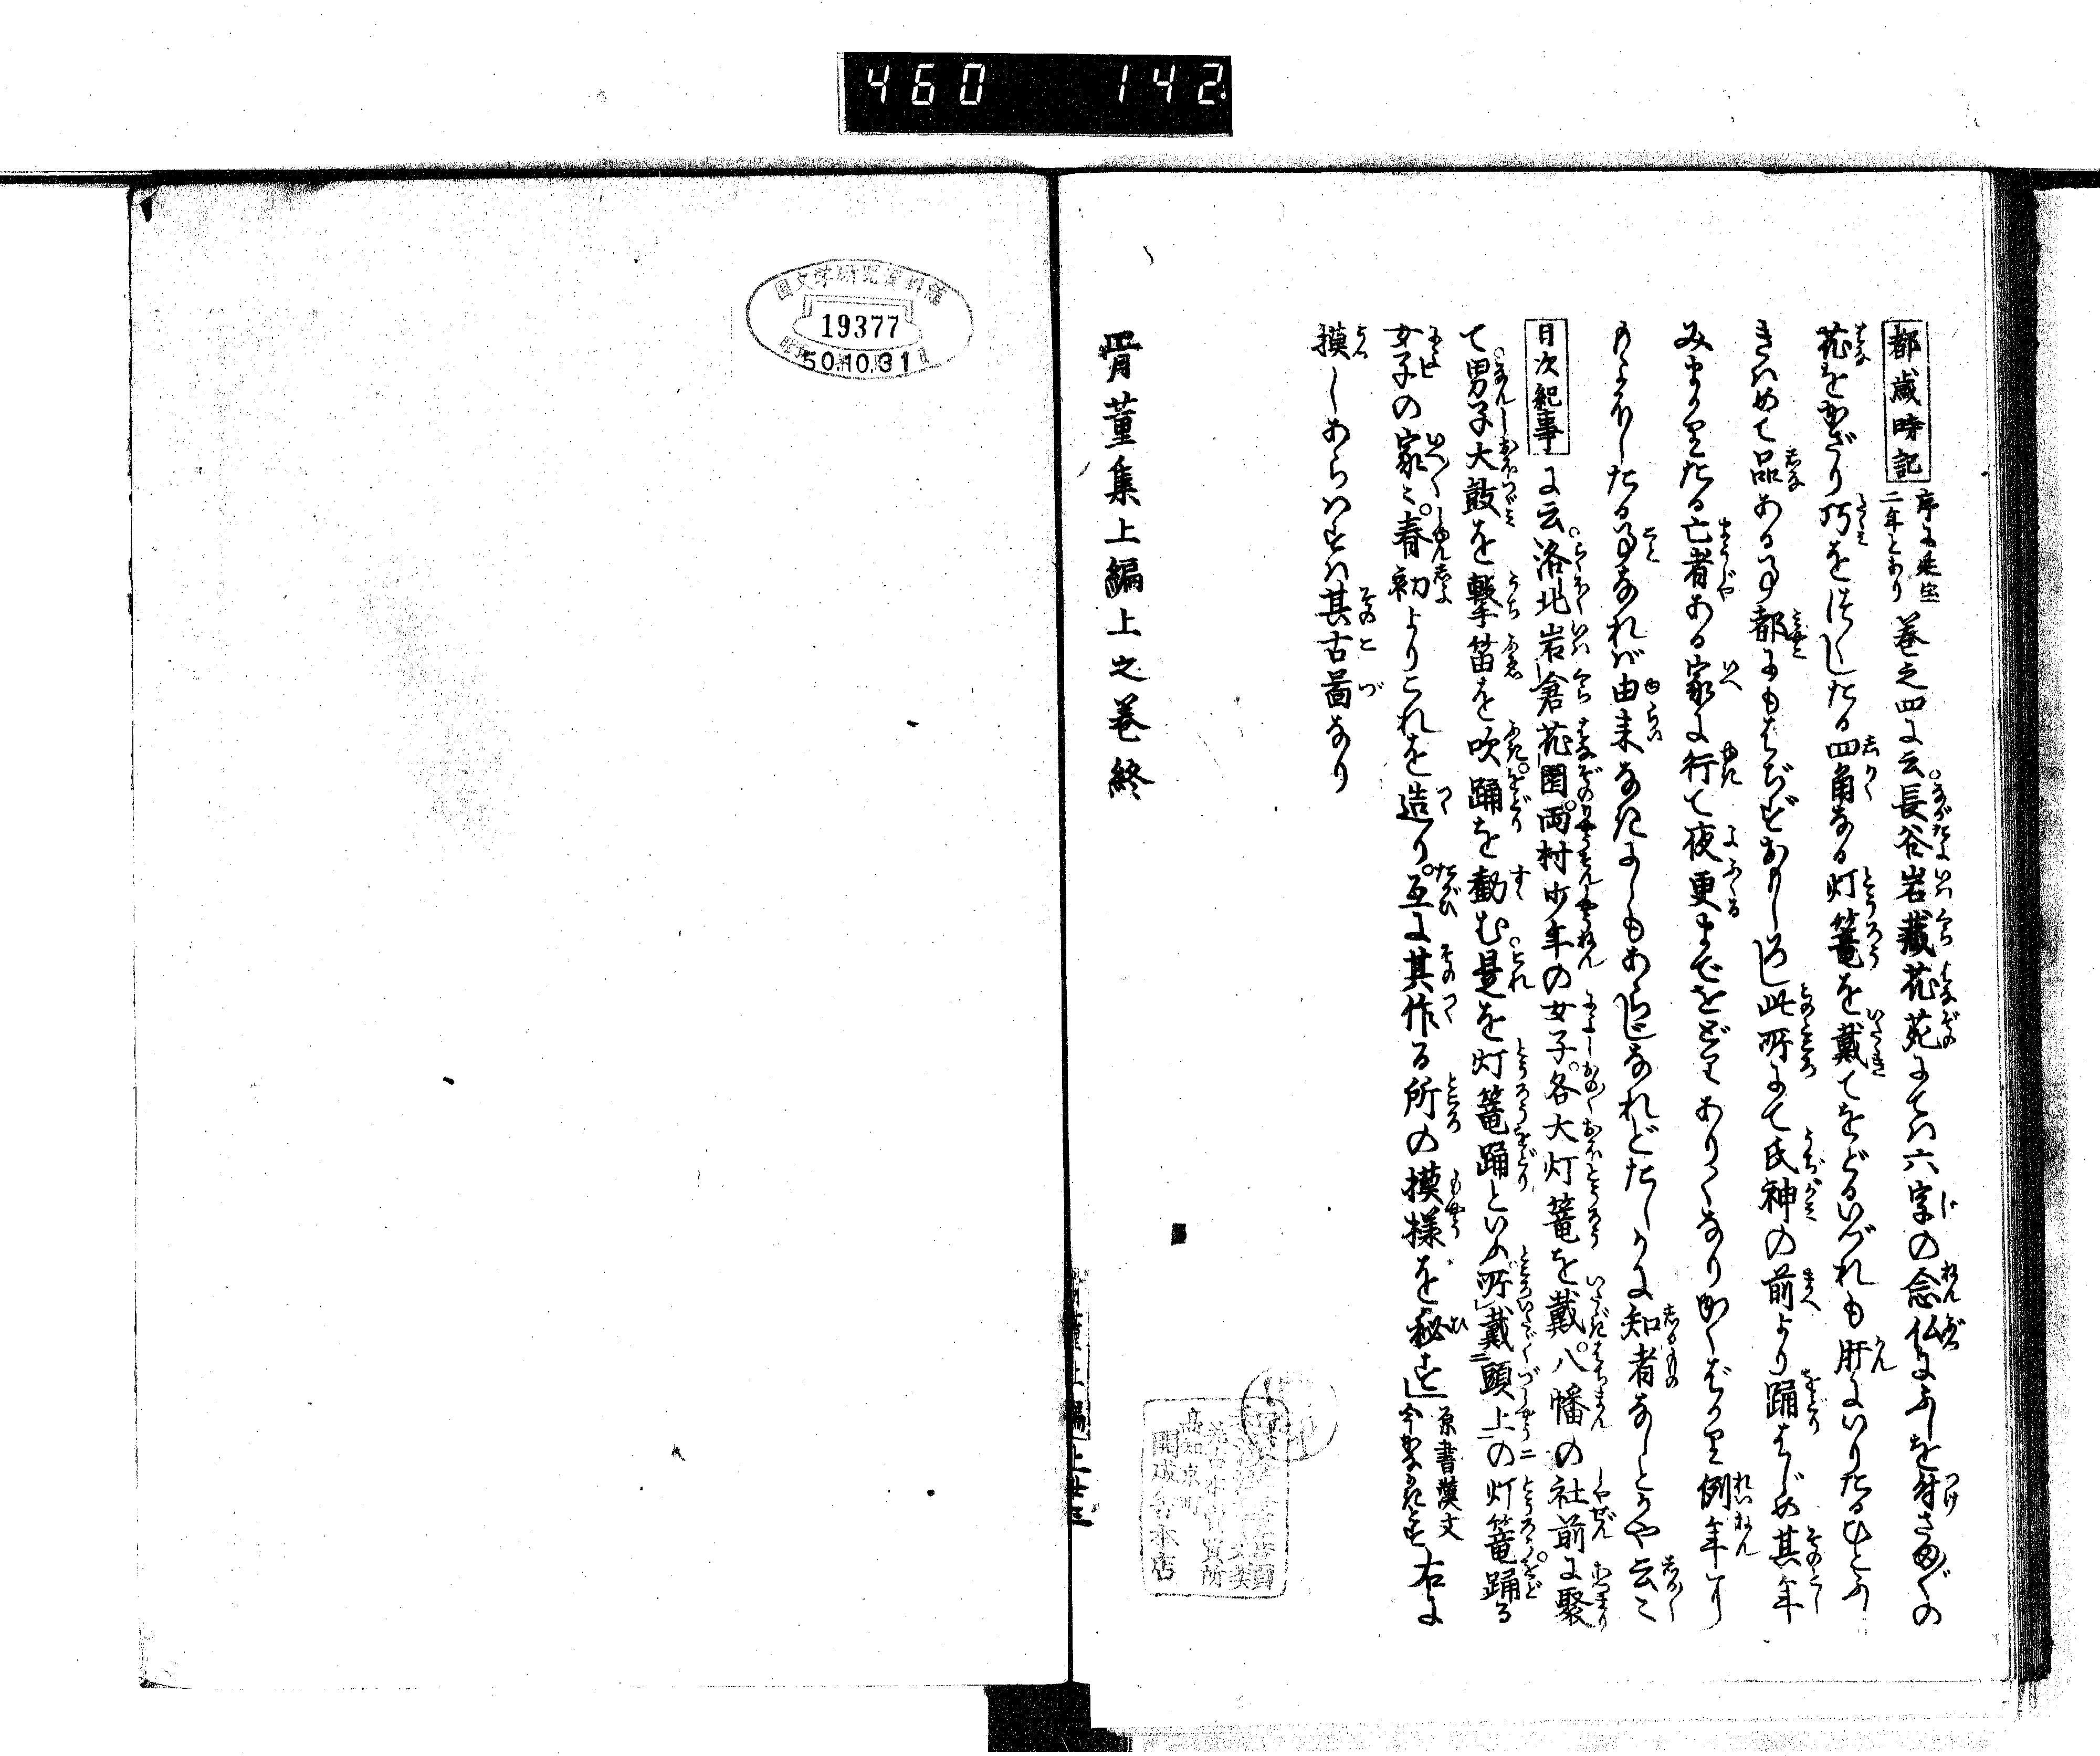 都歳時記 序に延宝二年とあり 巻之四に云。長谷岩蔵花苑にては六字の念仏にふしを付さま〴〵の
花をかざり巧をつくしたる四角なる灯篭を戴てをどるいづれも肝にいりたるひとふし
きはめて品ある事都にもはぢずおかし 此所にて氏神の前より踊はじめ其年
みまかりたる亡者ある家に行て夜更までをどりありくなり かくばかり例年
したる事なれば由来なきにしもあらじなれどたしかに知者なしとかや云々
日次紀事に云。洛北岩倉花園。両村少年の女子。各大灯篭を戴。八幡の社前に聚
て。男子大鼓を撃笛を吹。踊を勧む。是を灯篭踊といふ。所戴頭上の灯篭。踊る
女子の家々。春初よりこれを造り。互に其作る所の摸様を秘す 原書漢文今かなにかきす 右に
摸しあらはすは其古図なり
骨董集上編上之巻終
国文学研究資料館
19377
50.10.31
460 142
高知京町
開成舎本店